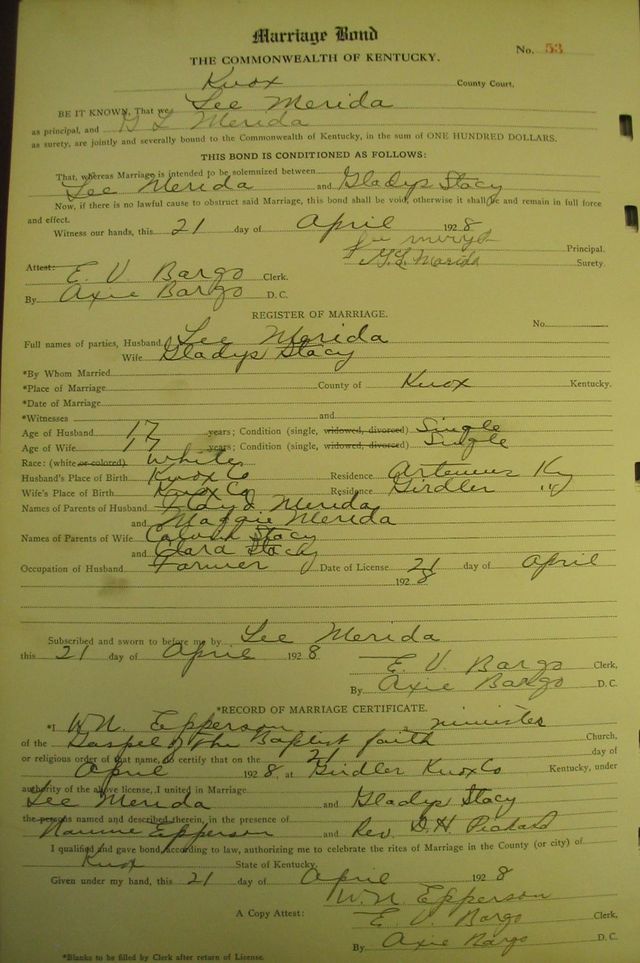 Marriage Bond
THE COMMONWEALTH OF KENTUCKY. No. 53
Knox County Court.
BE IT KNOWN, That we Lee Merida
as principal, and G L Merida
as surety, are jointly and severally bound to the Commonwealth of Kentucky, in the sum of ONE HUNDRED DOLLARS.
THIS BOND IS CONDITIONED AS FOLLOWS:
That, whereas Marriage is intended to be solemnized between
Lee Merida and Gladys Stacy
Now, if there is no lawful cause to obstruct said Marriage, this bond shall be void, otherwise it shall be and remain in full force
and effect.
Witness our hands, this 21 day of April 1928
Principal.
G.L. Merida Surety.
Attest: E. V. Bargo Clerk.
By Axie Bargo D. C.
REGISTER OF MARRIAGE.
No.
Full names of parties, Husband Lee Merida
Wife Gladys Stacy
*By Whom Married
*Place of Marriage County of Knox Kentucky.
*Date of Marriage
*Witnesses and
Age of Husband 17 years; Condition (single, widowed, divorced) Single
Age of Wife 17 years; Condition (single, widowed, divorced) Single
Race: (white or colored) White
Husband's Place of Birth Knox Co Residence Artemus Ky
Wife's Place of Birth Knox Co Residence Girdler "
Names of Parents of Husband Floyd Merida
and Maggie Merida
Names of Parents of Wife Calvin Stacy
and Clara Stacy
Occupation of Husband Farmer Date of License 21 day of April
1928
Subscribed and sworn to before me by Lee Merida
this 21 day of April 1928
E. V. Bargo Clerk,
By Axie Bargo D. C.
*RECORD OF MARRIAGE CERTIFICATE.
*I W.N. Epperson a minister
of the Gospel of the Baptist faith Church,
or religious order of that name, do certify that on the 21 day of
April 1928, at Girdler Knox Co Kentucky, under
authority of the above license, I united in Marriage
Lee Merida and Gladys Stacy
the persons named and described therein, in the presence of
Nannie Epperson and Rev. D.H. Pickard
I qualified and gave bond, according to law, authorizing me to celebrate the rites of Marriage in the County (or city) of
Knox State of Kentucky.
Given under my hand, this 21 day of April 1928
W. N. Epperson
A Copy Attest: E. V. Bargo Clerk,
By Axie Bargo D. C.
*Blanks to be filled by Clerk after return of License.